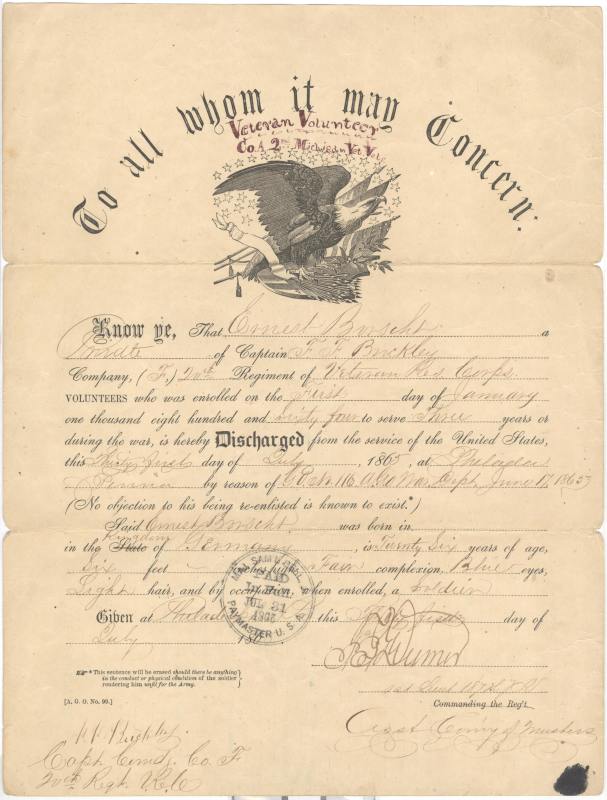 To all whom it may Concern:
Veteran Volunteer
Co A 2nd Michigan Vet Vol
Know ye, That Ernest Borscht a
Private of Captain F. F. Buckley
Company, (F,) 20th Regiment of Veteran Res. Corps
VOLUNTEERS who was enrolled on the first day of January
one thousand eight hundred and Sixty four to serve Three years or
during the war, is hereby Discharged from the service of the United States,
this Thirty first day of July, 1865, at Philadelphia
Penna by reason of G.O. No. 116 A.G.O. War Deptm June 17, 1865
(No objection to his being re-enlisted is known to exist.*)
Said Ernest Borscht was born in
Kingdom
in the State of Germany, is Twenty Six years of age,
Six feet inches high, Fair complexion, Blue eyes,
Light hair, and by occupation, when enrolled, a Soldier
Given at Philadelphia this Thirty first day of
July 186
PAID
JUL 31
1865
PAYMASTER U.S.A.
*This sentence will be erased should there be anything
in the conduct or physical condition of the soldier
rendering him unfit for the Army.
[A. G. O. No. 99.]
Commanding the Reg't
Asst Com'y of Musters
Capt Comdg. Co. F
20th Regt V.R.C